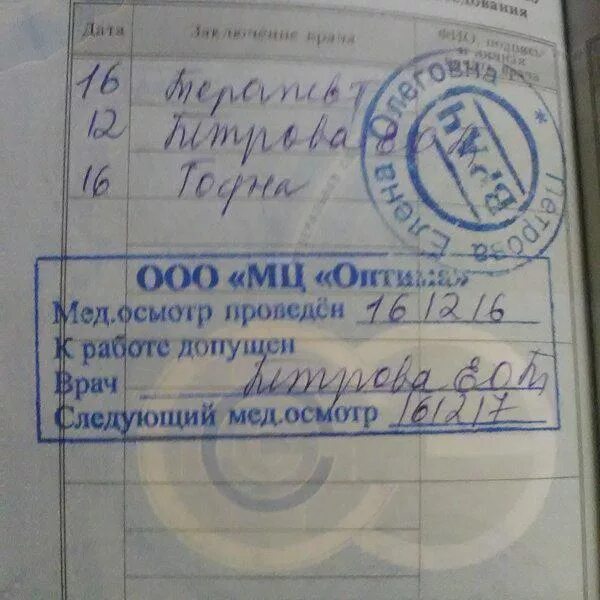 едования
Дата Заключение врача ФИО, подпись
и личная
врача
16 Терапевт
12 Петрова Е О
16 Годна
Петрова Елена Олеговна *
ВРАЧ
ООО «МЦ «Оптима»
Мед.осмотр проведён 16 12 16
К работе допущен
Врач Петрова Е О
Следующий мед.осмотр 16 12 17